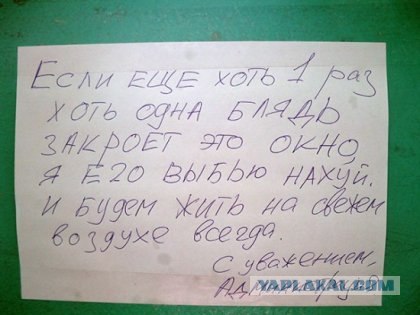 Если еще хоть 1 раз
хоть одна блядь
закроет это окно,
я его выбью нахуй.
И будем жить на свежем
воздухе всегда.
С уважением,
YAPLAKAL.COM